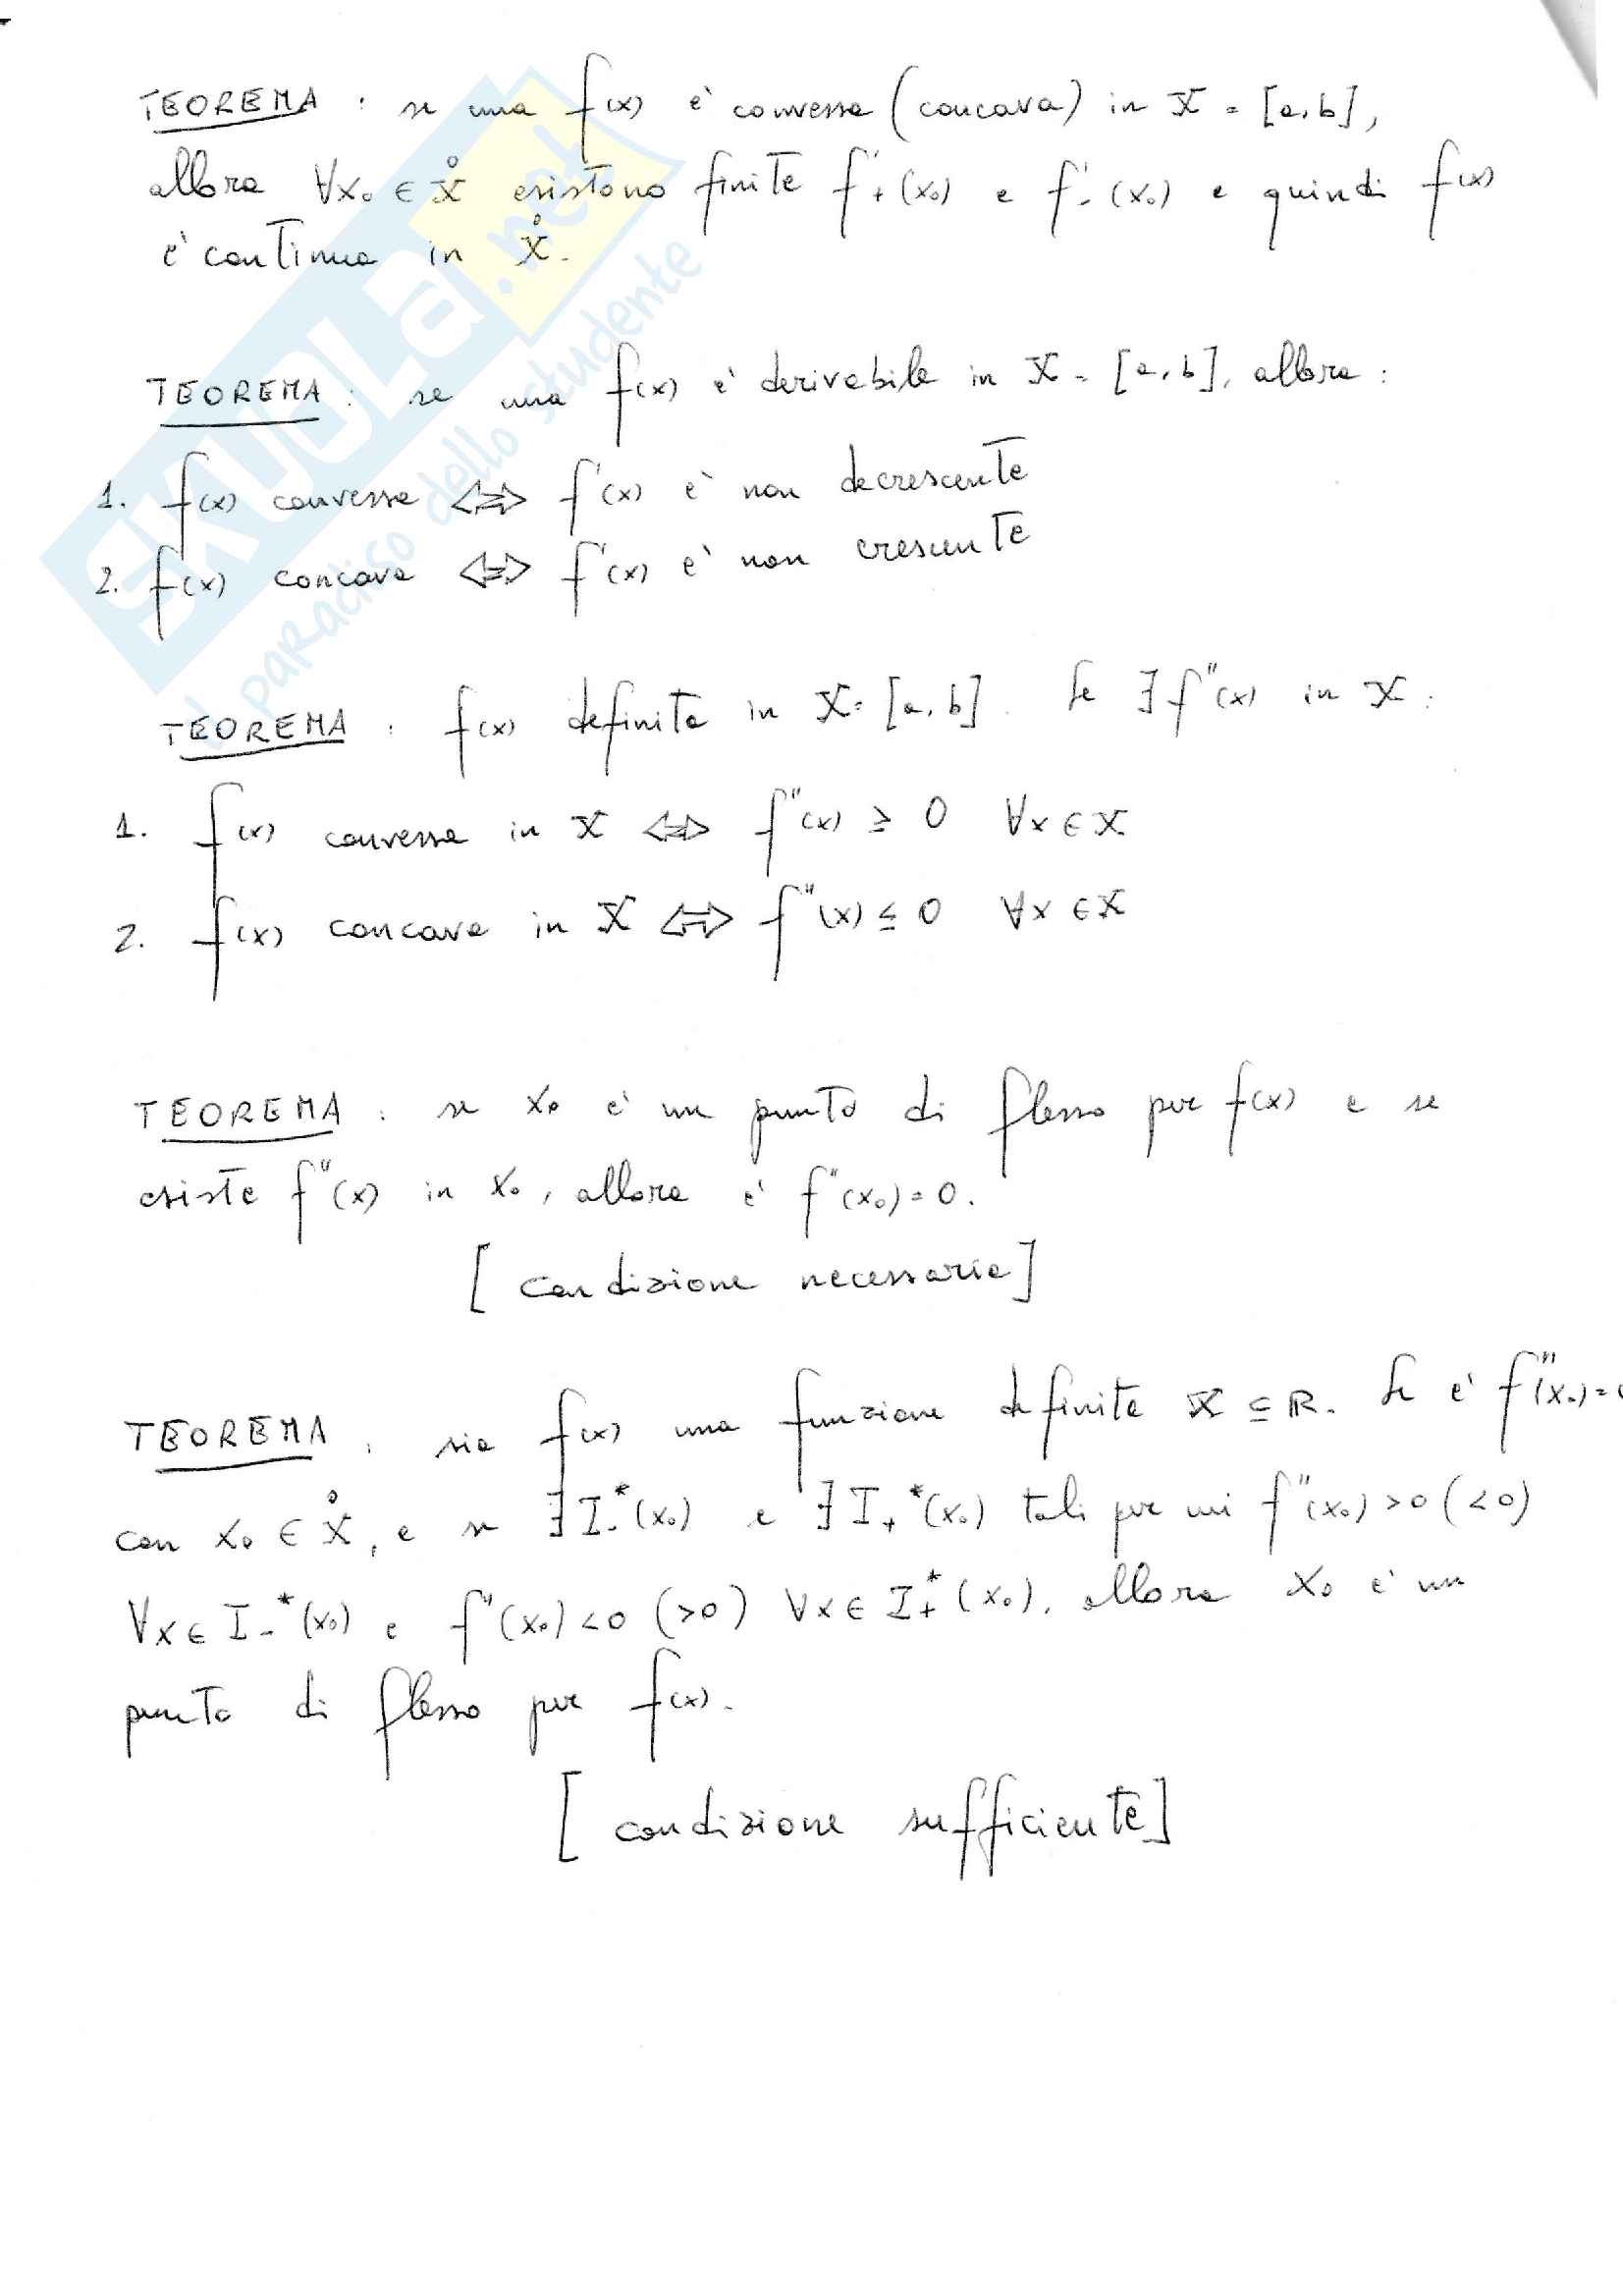 TEOREMA : se una f(x) è convessa (concava) in X = [a,b],
allora ∀x₀ ∈ X̊ esistono finite f'₊(x₀) e f'₋(x₀) e quindi f(x)
è continua in X̊.
TEOREMA : se una f(x) è derivabile in X = [a,b], allora :
1. f(x) convessa ⟺ f'(x) è non decrescente
2. f(x) concava ⟺ f'(x) è non crescente
TEOREMA : f(x) definita in X = [a,b]. Se ∃ f''(x) in X :
1. f(x) convessa in X ⟺ f''(x) ≥ 0 ∀x ∈ X
2. f(x) concava in X ⟺ f''(x) ≤ 0 ∀x ∈ X
TEOREMA : se x₀ è un punto di flesso per f(x) e se
esiste f''(x) in x₀, allora è f''(x₀) = 0.
[condizione necessaria]
TEOREMA : sia f(x) una funzione definita X ⊆ ℝ. Se è f''(x₀) =
con x₀ ∈ X̊, e se ∃ I₋*(x₀) e ∃ I₊*(x₀) tali per cui f''(x₀) > 0 (< 0)
∀x ∈ I₋*(x₀) e f''(x₀) < 0 (> 0) ∀x ∈ I₊*(x₀), allora x₀ è un
punto di flesso per f(x).
[condizione sufficiente]
SKUOLA.net
il paradiso dello studente